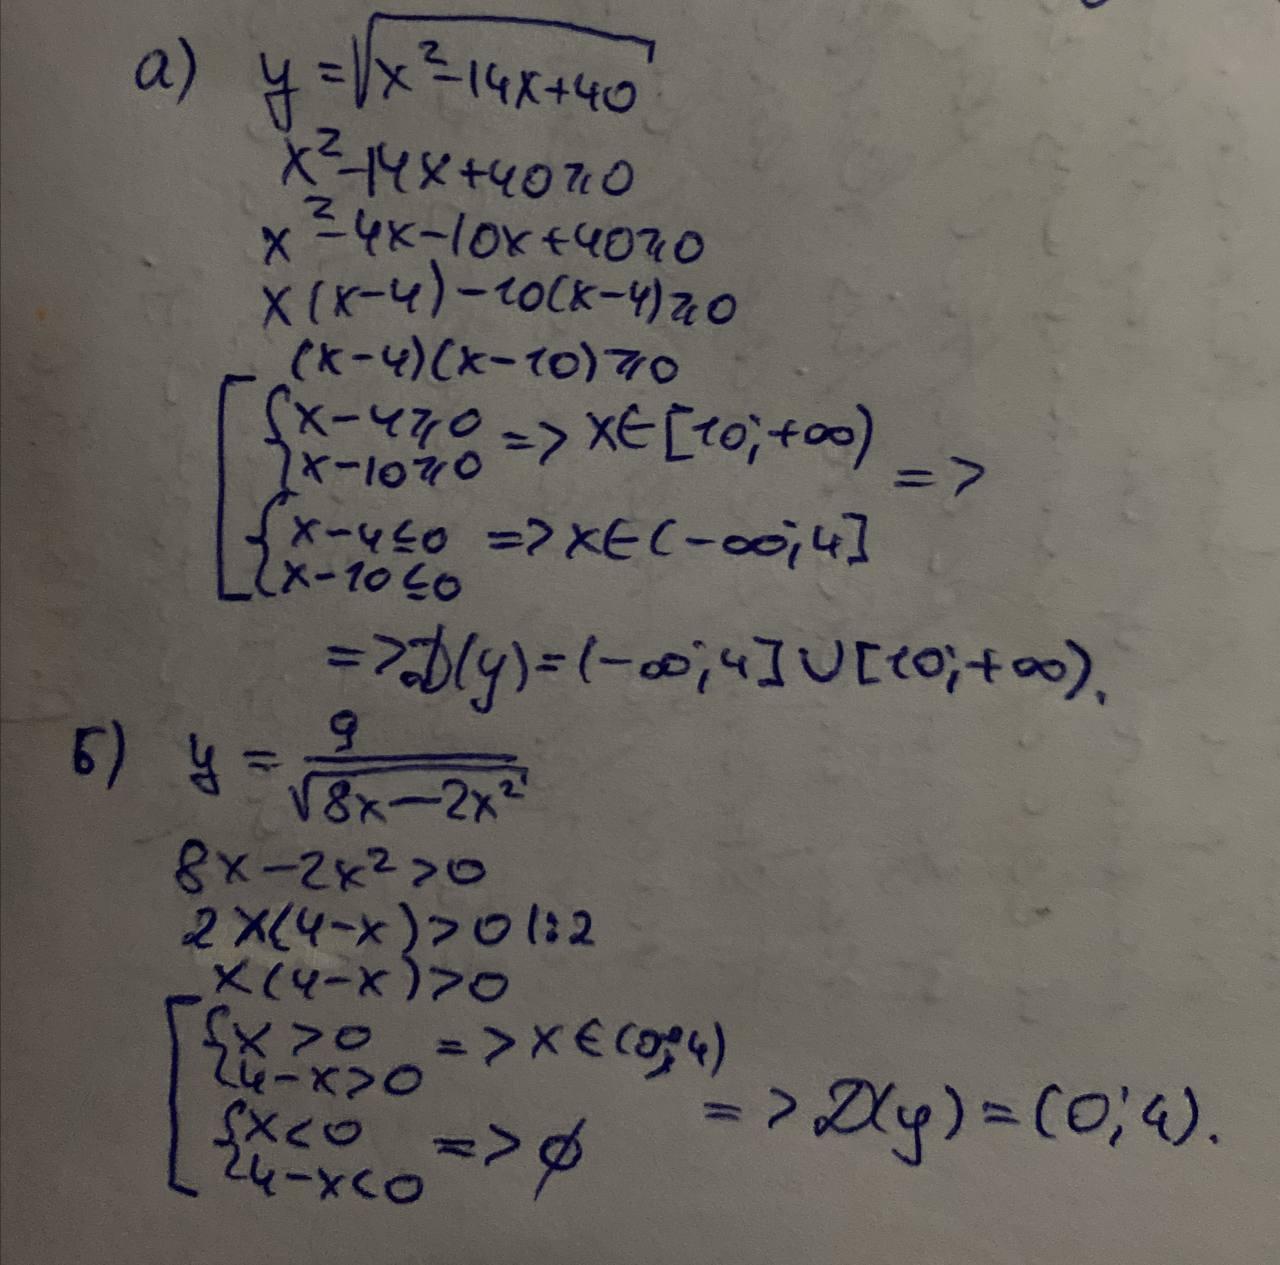 а) y = √(x² - 14x + 40)
x² - 14x + 40 ⩾ 0
x² - 4x - 10x + 40 ⩾ 0
x(x - 4) - 10(x - 4) ⩾ 0
(x - 4)(x - 10) ⩾ 0
[ { x - 4 ⩾ 0
{ x - 10 ⩾ 0 => x ∈ [10; +∞)
{ x - 4 ≤ 0
{ x - 10 ≤ 0 => x ∈ (-∞; 4] =>
=> D(y) = (-∞; 4] ∪ [10; +∞).
б) y = 9/√(8x - 2x²)
8x - 2x² > 0
2x(4 - x) > 0 |: 2
x(4 - x) > 0
[ { x > 0
{ 4 - x > 0 => x ∈ (0; 4)
{ x < 0
{ 4 - x < 0 => ∅ => D(y) = (0; 4).